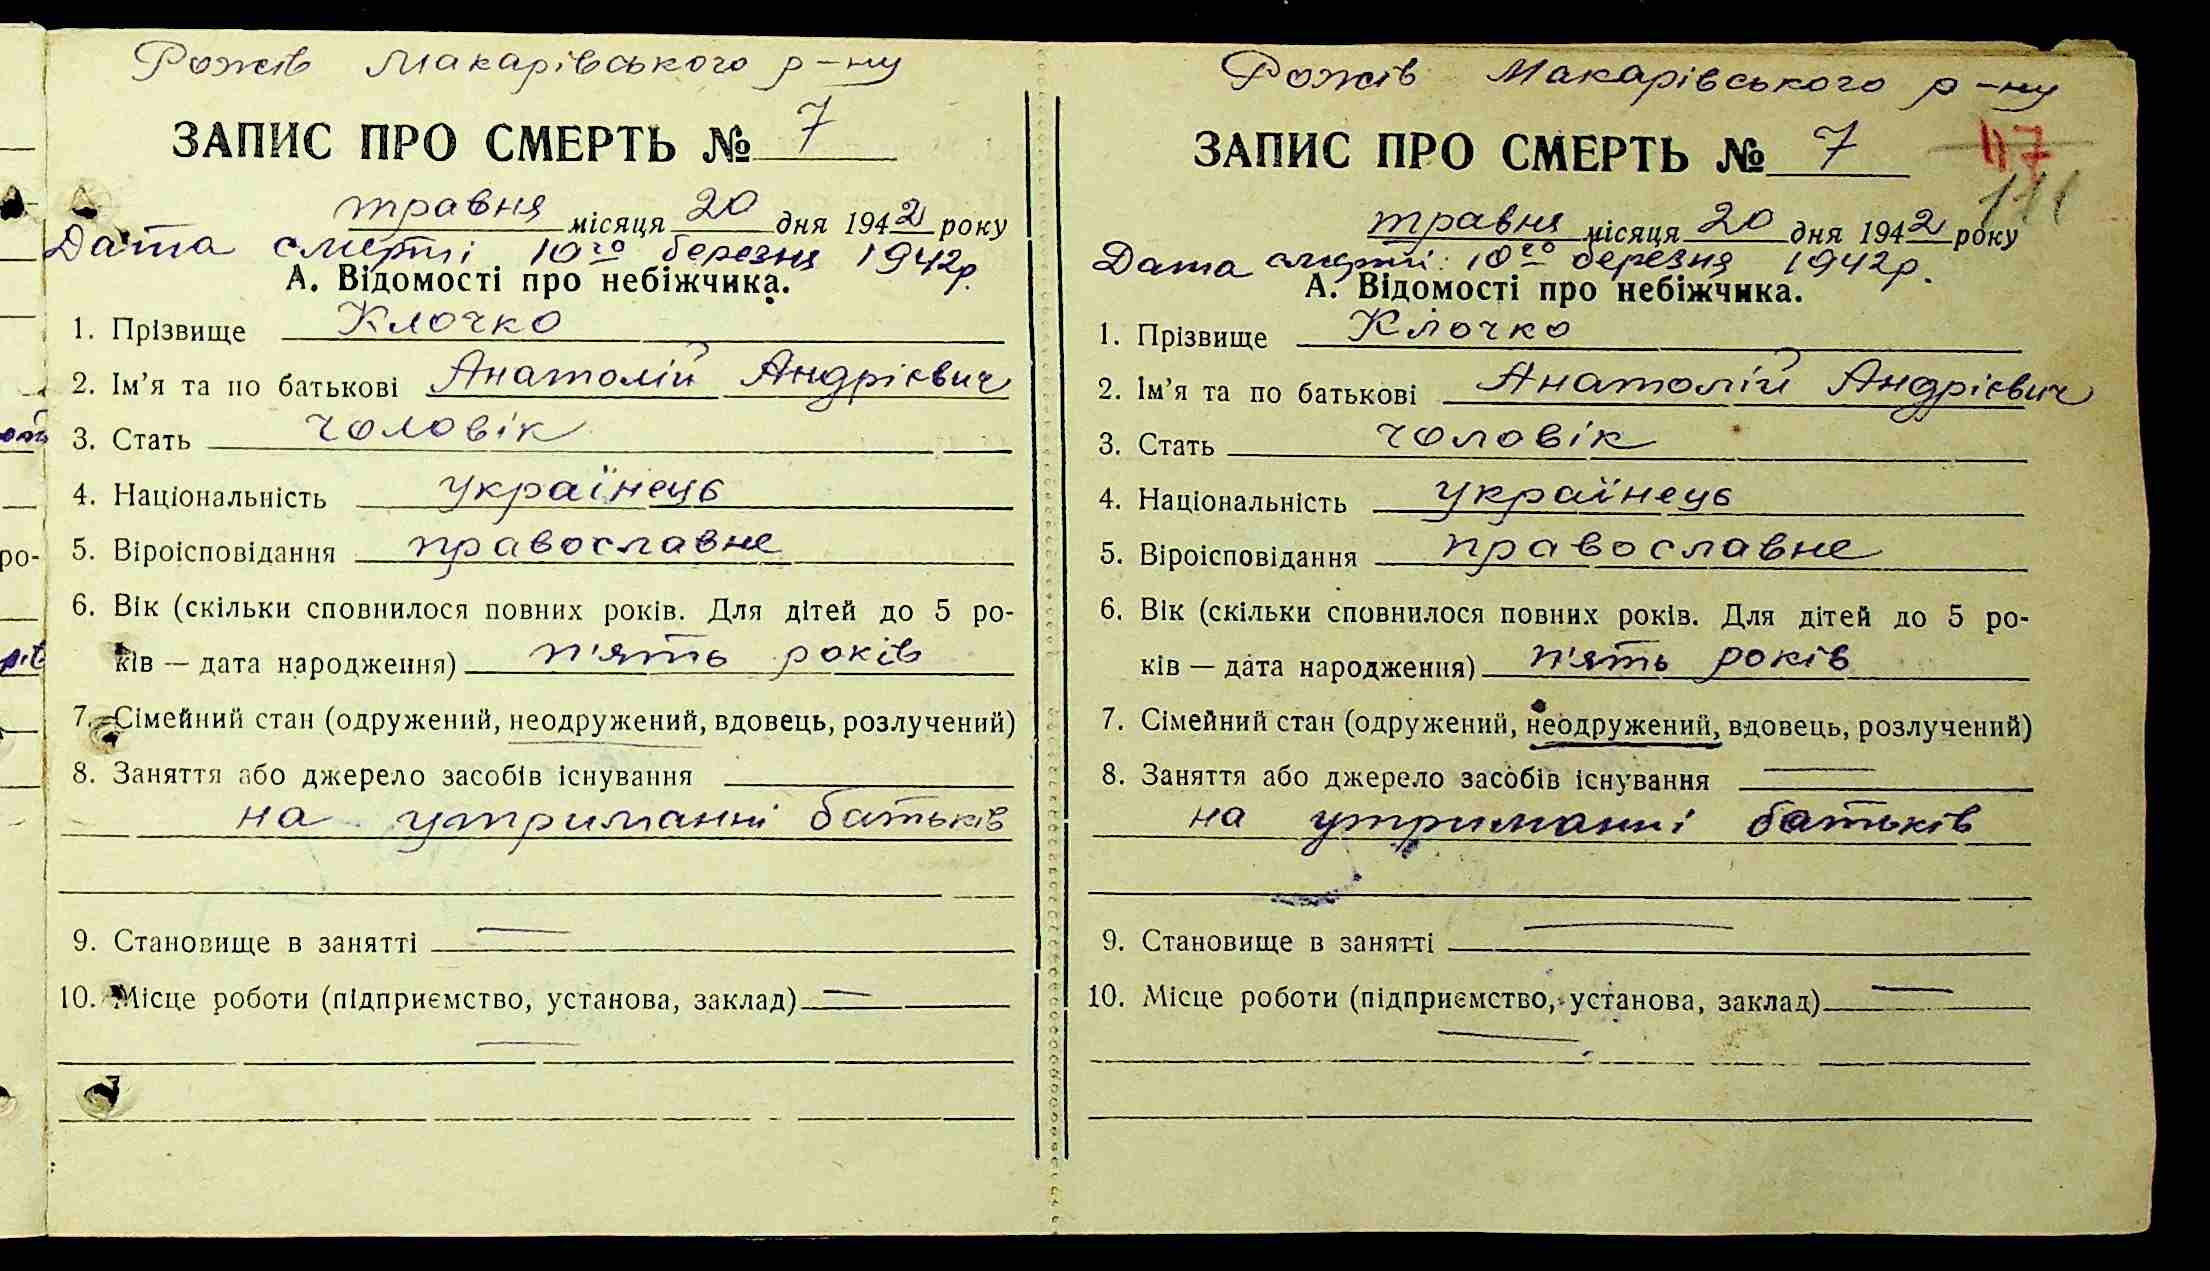 Рожів Макарівського р-ну
ЗАПИС ПРО СМЕРТЬ № 7
травня місяця 20 дня 1942 року
Дата смерті 10го березня 1942р.
А. Відомості про небіжчика.
1. Прізвище Клочко
2. Ім'я та по батькові Анатолій Андрієвич
3. Стать чоловік
4. Національність українець
5. Віроісповідання православне
6. Вік (скільки сповнилося повних років. Для дітей до 5 ро-
ків — дата народження) п'ять років
7. Сімейний стан (одружений, неодружений, вдовець, розлучений)
8. Заняття або джерело засобів існування
на утриманні батьків
9. Становище в занятті —
10. Місце роботи (підприємство, установа, заклад) —
—
Рожів Макарівського р-ну
ЗАПИС ПРО СМЕРТЬ № 7
47
травня місяця 20 дня 1942 року
Дата смерті: 10го березня 1942р.
А. Відомості про небіжчика.
1. Прізвище Клочко
2. Ім'я та по батькові Анатолій Андрієвич
3. Стать чоловік
4. Національність українець
5. Віроісповідання православне
6. Вік (скільки сповнилося повних років. Для дітей до 5 ро-
ків — дата народження) п'ять років
7. Сімейний стан (одружений, неодружений, вдовець, розлучений)
8. Заняття або джерело засобів існування —
на утриманні батьків
9. Становище в занятті —
10. Місце роботи (підприємство, установа, заклад) —
—